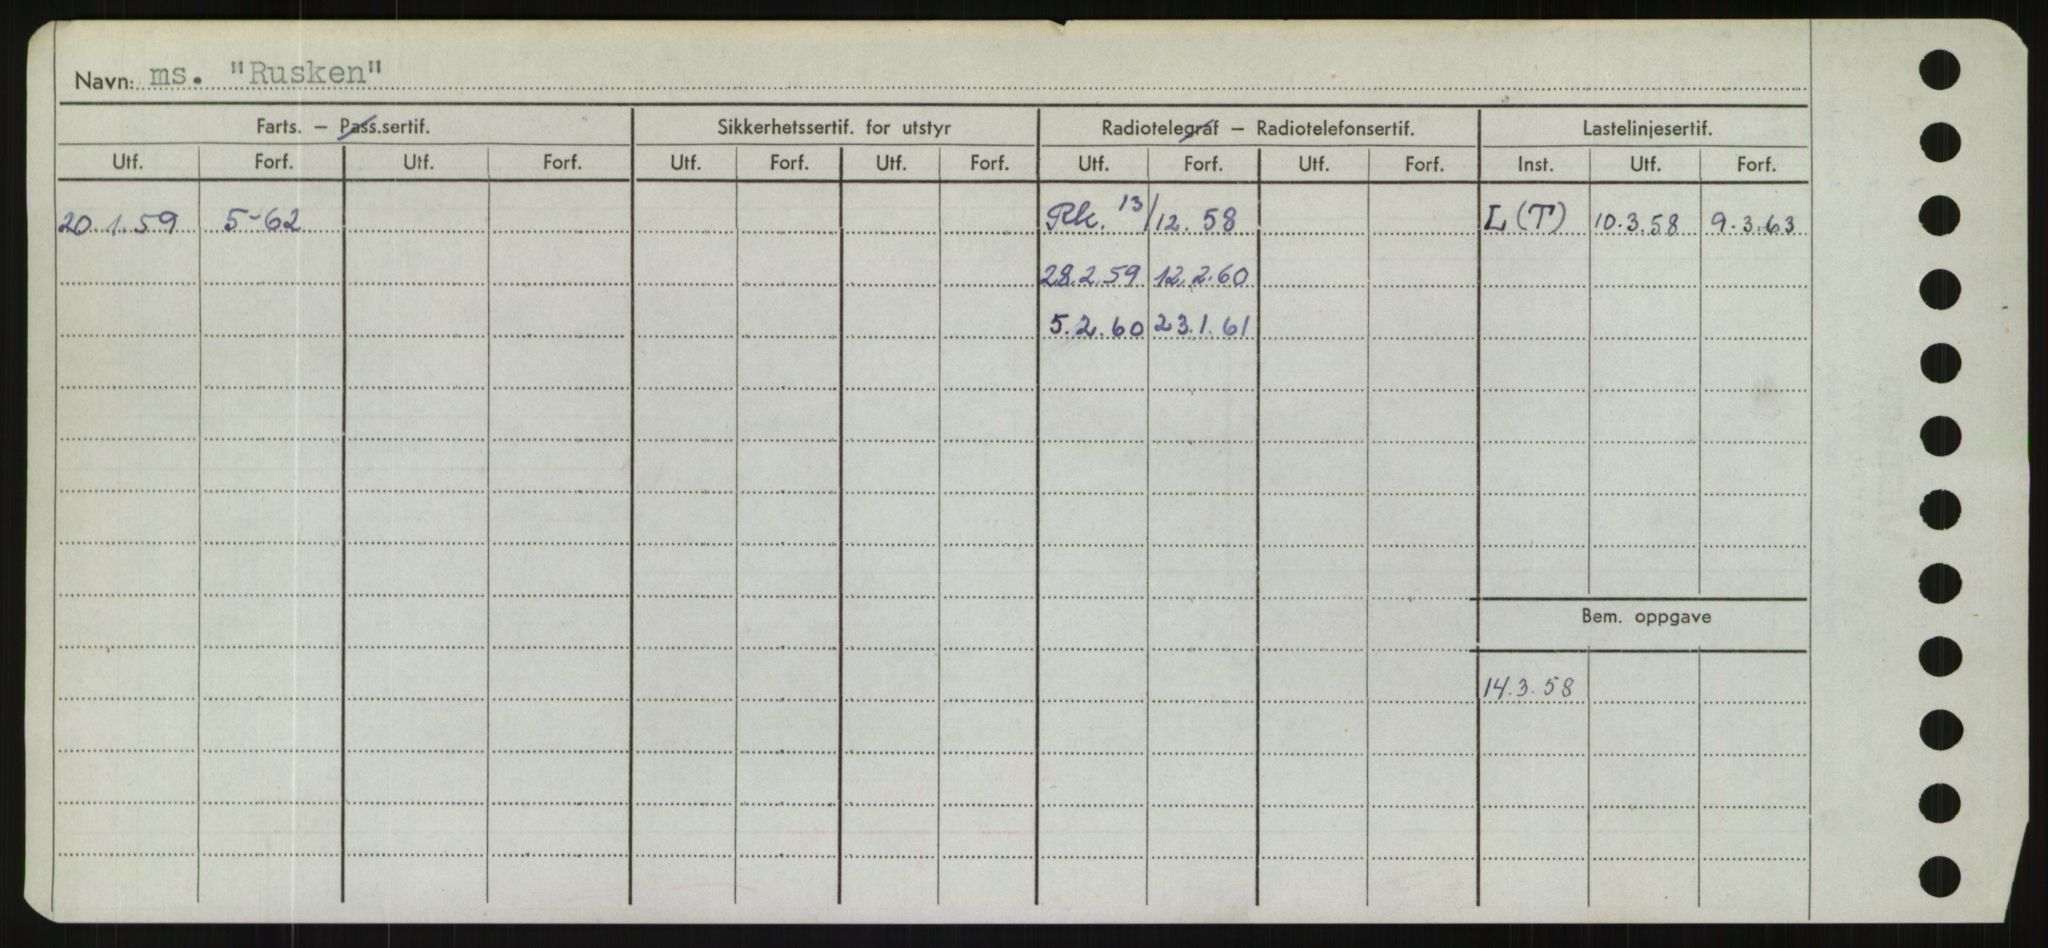 Navn: ms. "Rusken"
Farts. — Pass.sertif. Sikkerhetssertif. for utstyr Radiotelegraf — Radiotelefonsertif. Lastelinjesertif.
Utf. Forf. Utf. Forf. Utf. Forf. Utf. Forf. Utf. Forf. Utf. Forf. Inst. Utf. Forf.
20.1.59 5-62 Rk. 13/12.58 L(T) 10.3.58 9.3.63
28.2.59 12.2.60
5.2.60 23.1.61
Bem. oppgave
14.3.58